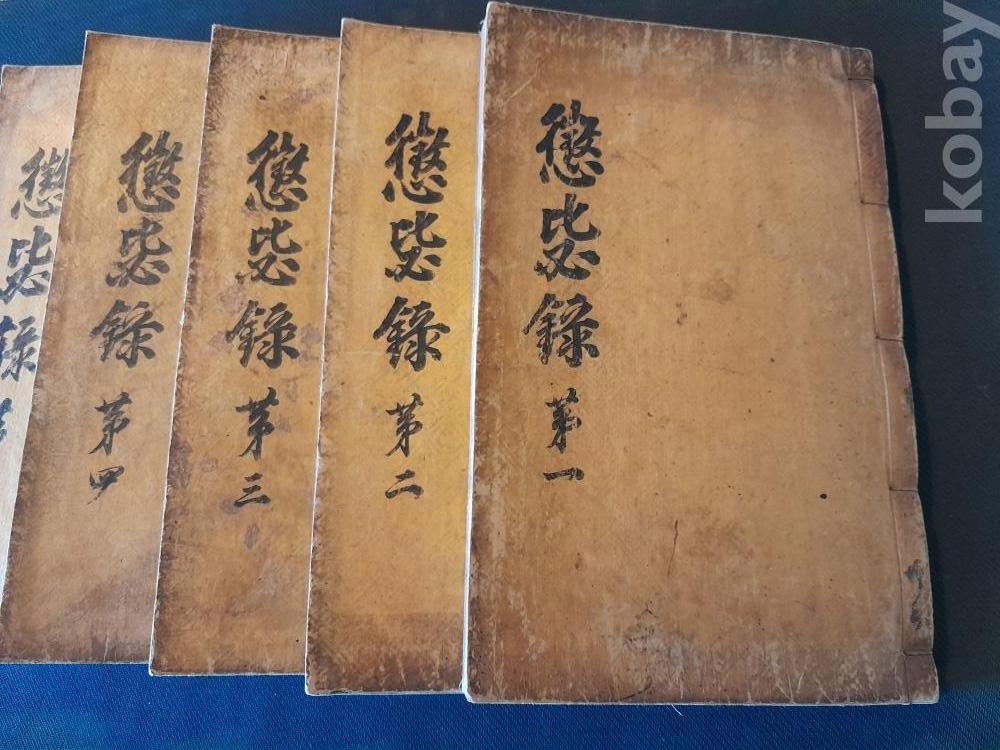 懲毖錄 第一
懲毖錄 第二
懲毖錄 第三
懲毖錄 第四
懲毖錄
kobay